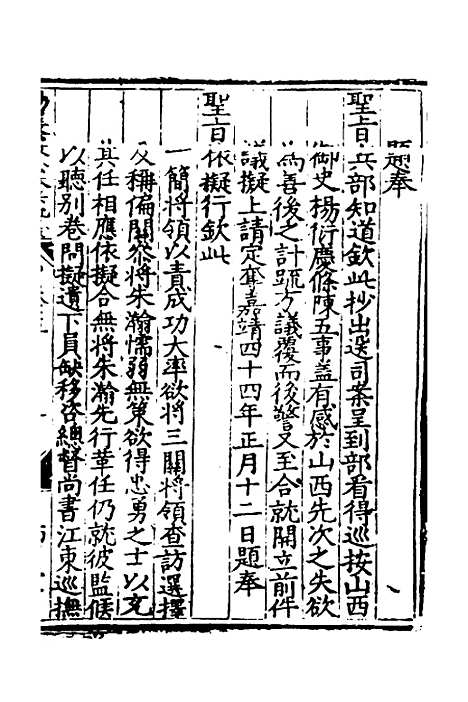 題奉
聖旨兵部知道欽此抄出送司案呈到部看得巡按山西
御史楊衍慶條陳五事蓋有感於山西先次之失欲
為善後之計疏方議覆而後警又至合就開立前件
議擬上請定奪嘉靖四十四年正月十二日題奉
聖旨依擬行欽此
一簡將領以責成功大率欲將三關將領查訪選擇
又稱偏關參將朱瀚懦弱無策欲得忠勇之士以充
其任相應依擬合無將朱瀚先行革任仍就彼監候
以聽別卷問擬遺下員缺移咨總督尚書江東巡撫